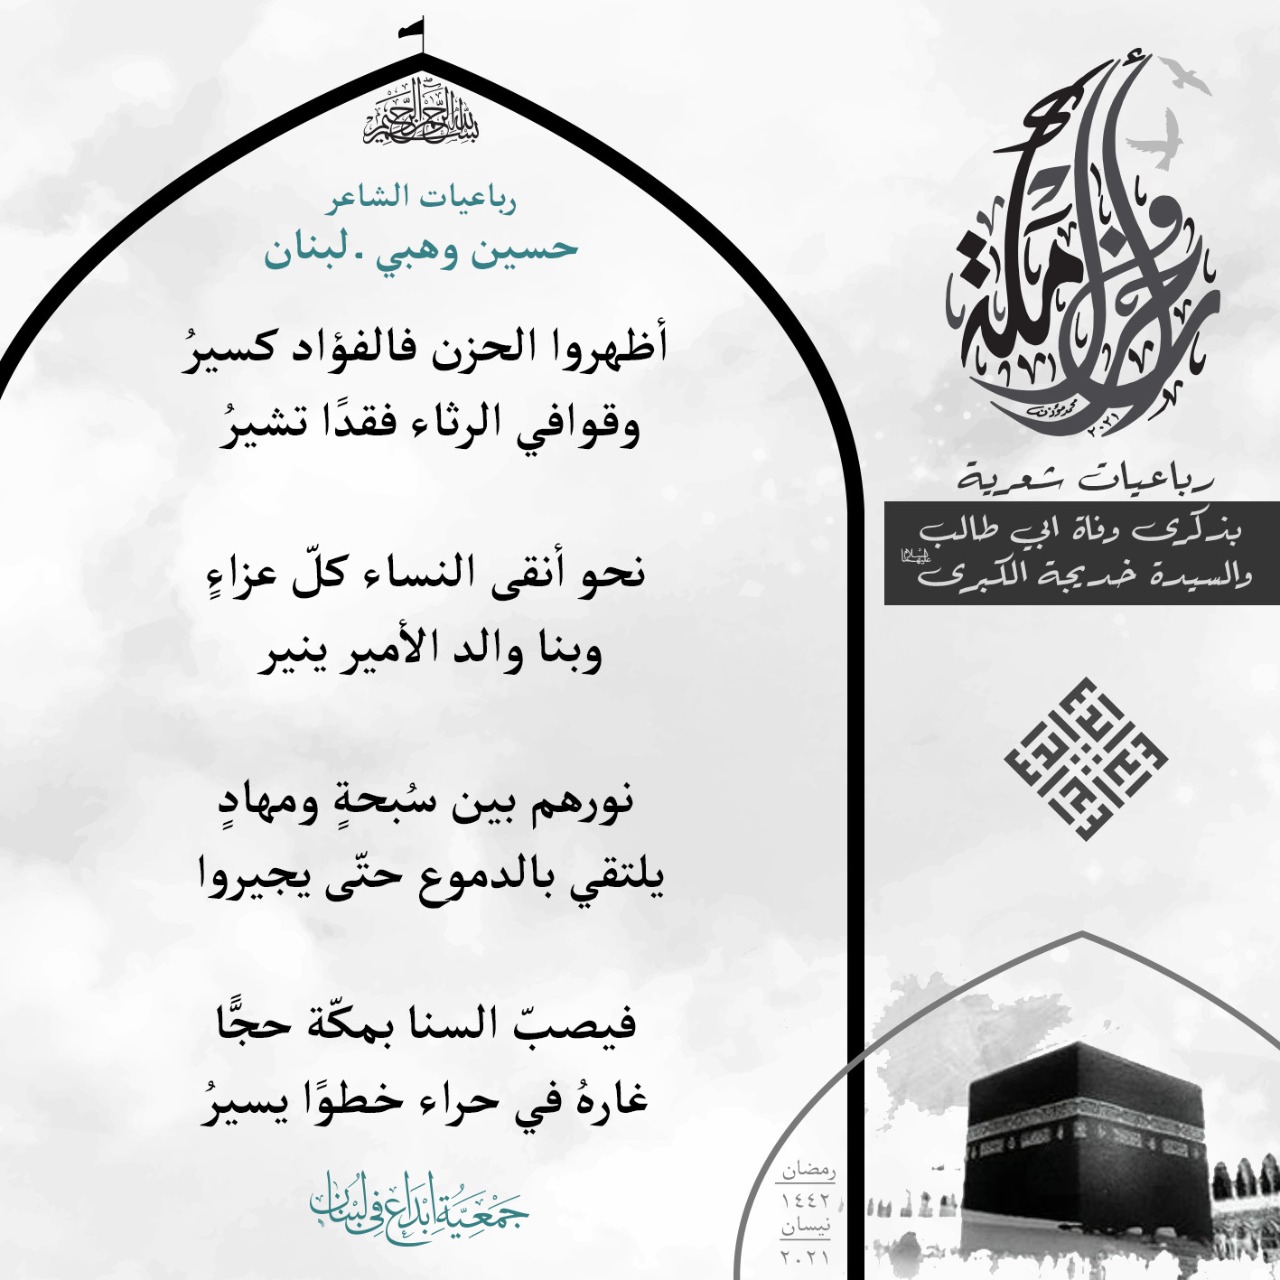 بسم الله الرحمن الرحيم
رباعيات الشاعر
حسين وهبي . لبنان
أظهروا الحزن فالفؤاد كسيرُ
وقوافي الرثاء فقدًا تشيرُ
نحو أنقى النساء كلّ عزاءٍ
وبنا والد الأمير ينير
نورهم بين سُبحةٍ ومهادٍ
يلتقي بالدموع حتّى يجيروا
فيصبّ السنا بمكّة حجًّا
غارهُ في حراء خطوًا يسيرُ
جَمْعِيَّةُ إبْدَاع فِي لُبْنَان
محمد مؤذن
٢٠٢١
رباعيات شعرية
بذكرى وفاة ابي طالب
والسيدة خديجة الكبرى عليهما السلام
رمضان
١٤٤٢
نيسان
٢٠٢١